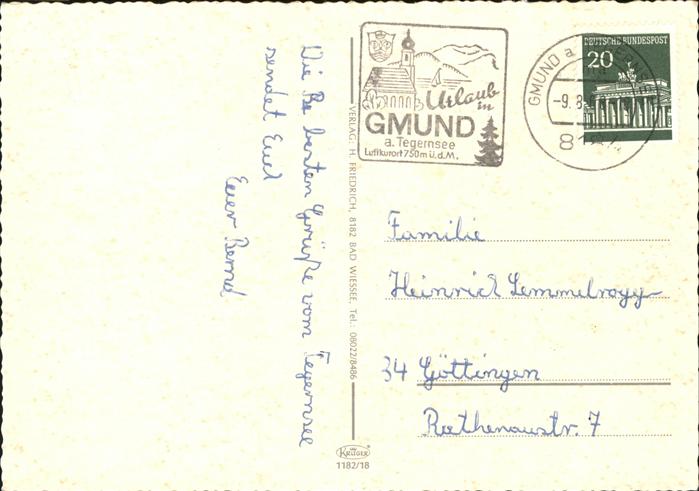 Die Be besten Grüße vom Tegernsee
sendet Euch
Euer Bernd
VERLAG: H. FRIEDRICH, 8182 BAD WIESSEE, Tel.: 08022/8486
KRÜGER
1182/18
Urlaub
in
GMUND
a. Tegernsee
Luftkurort 750m ü.d.M.
GMUND a
-9. 8
8
DEUTSCHE BUNDESPOST
20
Familie
Heinrich
34 Göttingen
Rathenaustr. 7